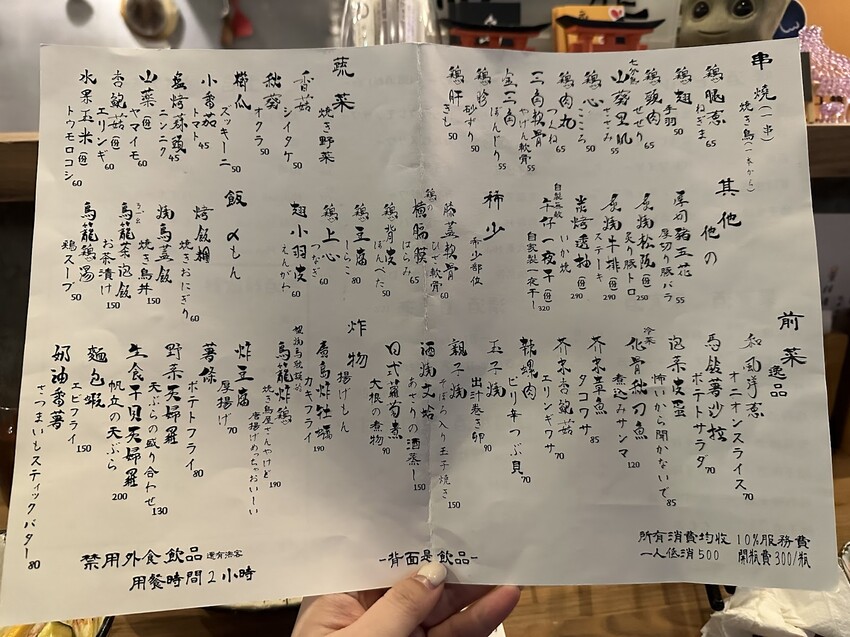 串燒(一串)
焼き鳥(一本から)
鷄腿蔥
ねぎま 65
鷄翅
手羽 50
鷄頸肉
せせり 65
七分熟
山葵里肌
ささみ 55
鷄心
こころ 50
鷄肉丸
つくね 65
三角軟骨
やげん軟骨 55
七里三角
ぼんじり 55
鷄胗
砂ずり 50
鷄肝
きも 50
蔬菜
焼き野菜
香菇
シイタケ 50
秋葵
オクラ 50
櫛瓜
ズッキーニ 50
小番茄
トマト 45
鹽烤蒜頭
ニンニク 45
山菜(份)
ヤマイモ 60
杏鮑菇(份)
エリンギ 60
水果玉米(份)
トウモロコシ 60
其他
他の
厚切豬五花
厚切り豚バラ 55
炙燒松阪(份)
炙り豚トロ 250
炙燒牛排(份)
ステーキ 290
炭烤透抽(份)
いか焼 290
自製無敵
午仔一夜干(份)
自家製一夜干し 320
稀少
希少部位
膝蓋軟骨
ひざ軟骨 60
鷄の
橫膈膜
はらみ 65
鷄背皮
ぼんぺた 50
鷄豆腐
しらこ 80
鷄上心
つなぎ 60
翅小羽皮
えんがわ 60
飯
〆もん
烤飯糰
焼きおにぎり 60
燒鳥蓋飯
焼き鳥丼 150
烏龍茶泡飯
お茶漬け 150
烏籠鷄湯
鶏スープ 50
前菜
逸品
和風洋蔥
オニオンスライス 70
馬鈴薯沙拉
ポテトサラダ 70
泡菜皮蛋
怖いから聞かないで 85
冷菜
化骨秋刀魚
煮込みサンマ 120
芥末章魚
タコワサ 85
芥末杏鮑菇
エリンギワサ 70
辣螺肉
ピリ辛つぶ貝 70
玉子燒
出汁巻き卵 90
親子燒
そぼろ入り玉子焼き 150
酒燒文蛤
あさりの酒蒸し 150
日式蘿蔔煮
大根の煮物 90
炸物
揚げもん
廣島炸牡蠣
カキフライ 190
烏籠炸鷄
焼き鳥屋でんやけど 唐揚げめっちゃおいーしい 190
炸豆腐
厚揚げ 70
薯條
ポテトフライ 80
野菜天婦羅
天ぷらの盛り合わせ 130
生食干貝天婦羅
帆立の天ぷら 200
麵包蝦
エビフライ 150
奶油番薯
さつまいもスティックバター 80
所有消費均收10%服務費
一人低消500 開瓶費300/瓶
-背面是飲品-
禁用外食飲品 還有海客
用餐時間2小時